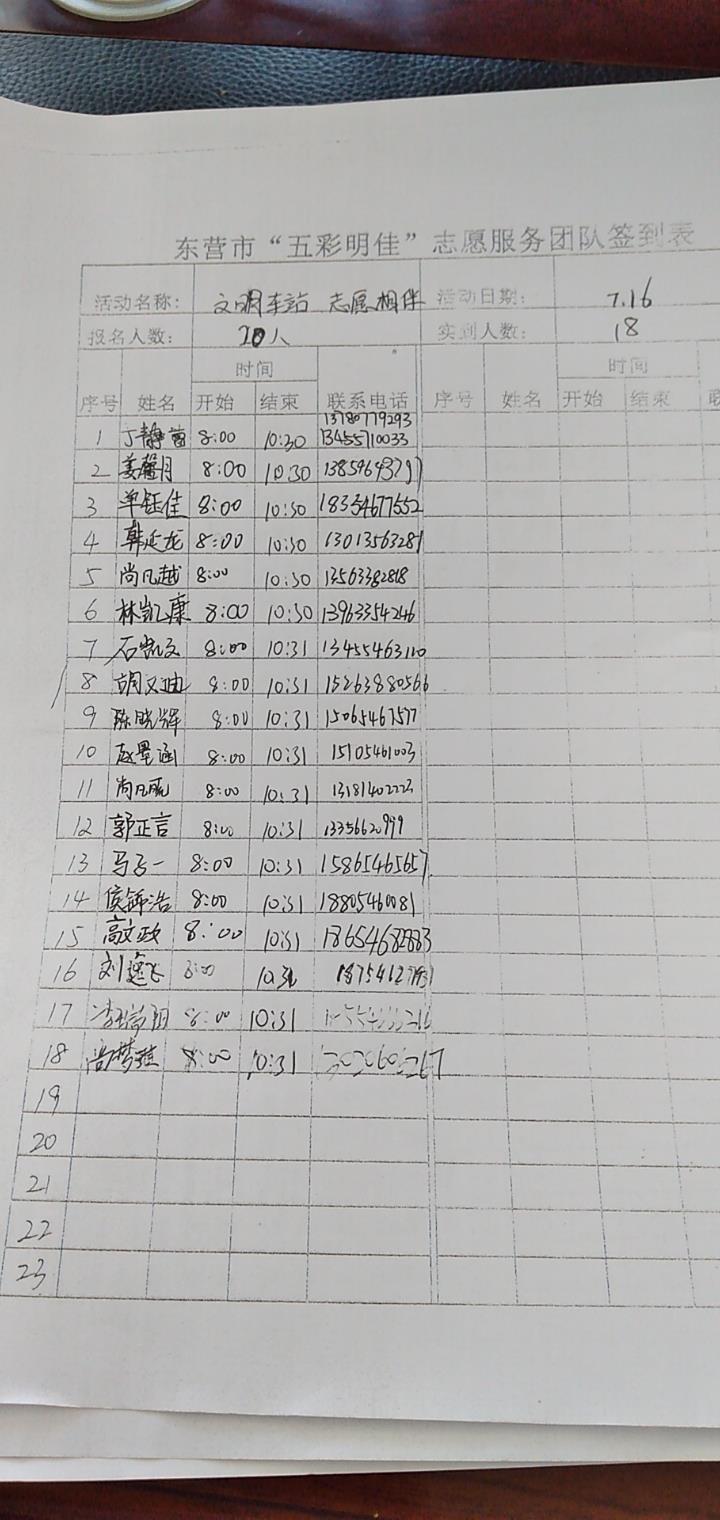 东营市“五彩明佳”志愿服务团队签到表
活动名称: 文明车站 志愿相伴 活动日期: 7.16
报名人数: 20人 实到人数: 18
时间 时间
序号 姓名 开始 结束 联系电话 序号 姓名 开始 结束 联
13780779293
1 丁静茵 8:00 10:30 13455710033
2 姜馨月 8:00 10:30
3 单钰佳 8:00 10:30 18354677552
4 韩延龙 8:00 10:30 13013563281
5 尚凡越 8:00 10:30 13563382818
6 林凯康 8:00 10:30 13963354246
7 石凯文 8:00 10:31 13455463110
8 胡又迪 8:00 10:31 15263880566
9 陈晓辉 8:00 10:31 15065467577
10 8:00 10:31 15105461003
11 8:00 10:31 13181402223
12 郭正言 8:00 10:31
13 马子一 8:00 10:31 15865465657
14 8:00 10:31 18805460081
15 高文政 8:00 10:31 18654682883
16 刘逸飞 8:00 10:31
17 8:00 10:31
18 8:00 10:31
19
20
21
22
23